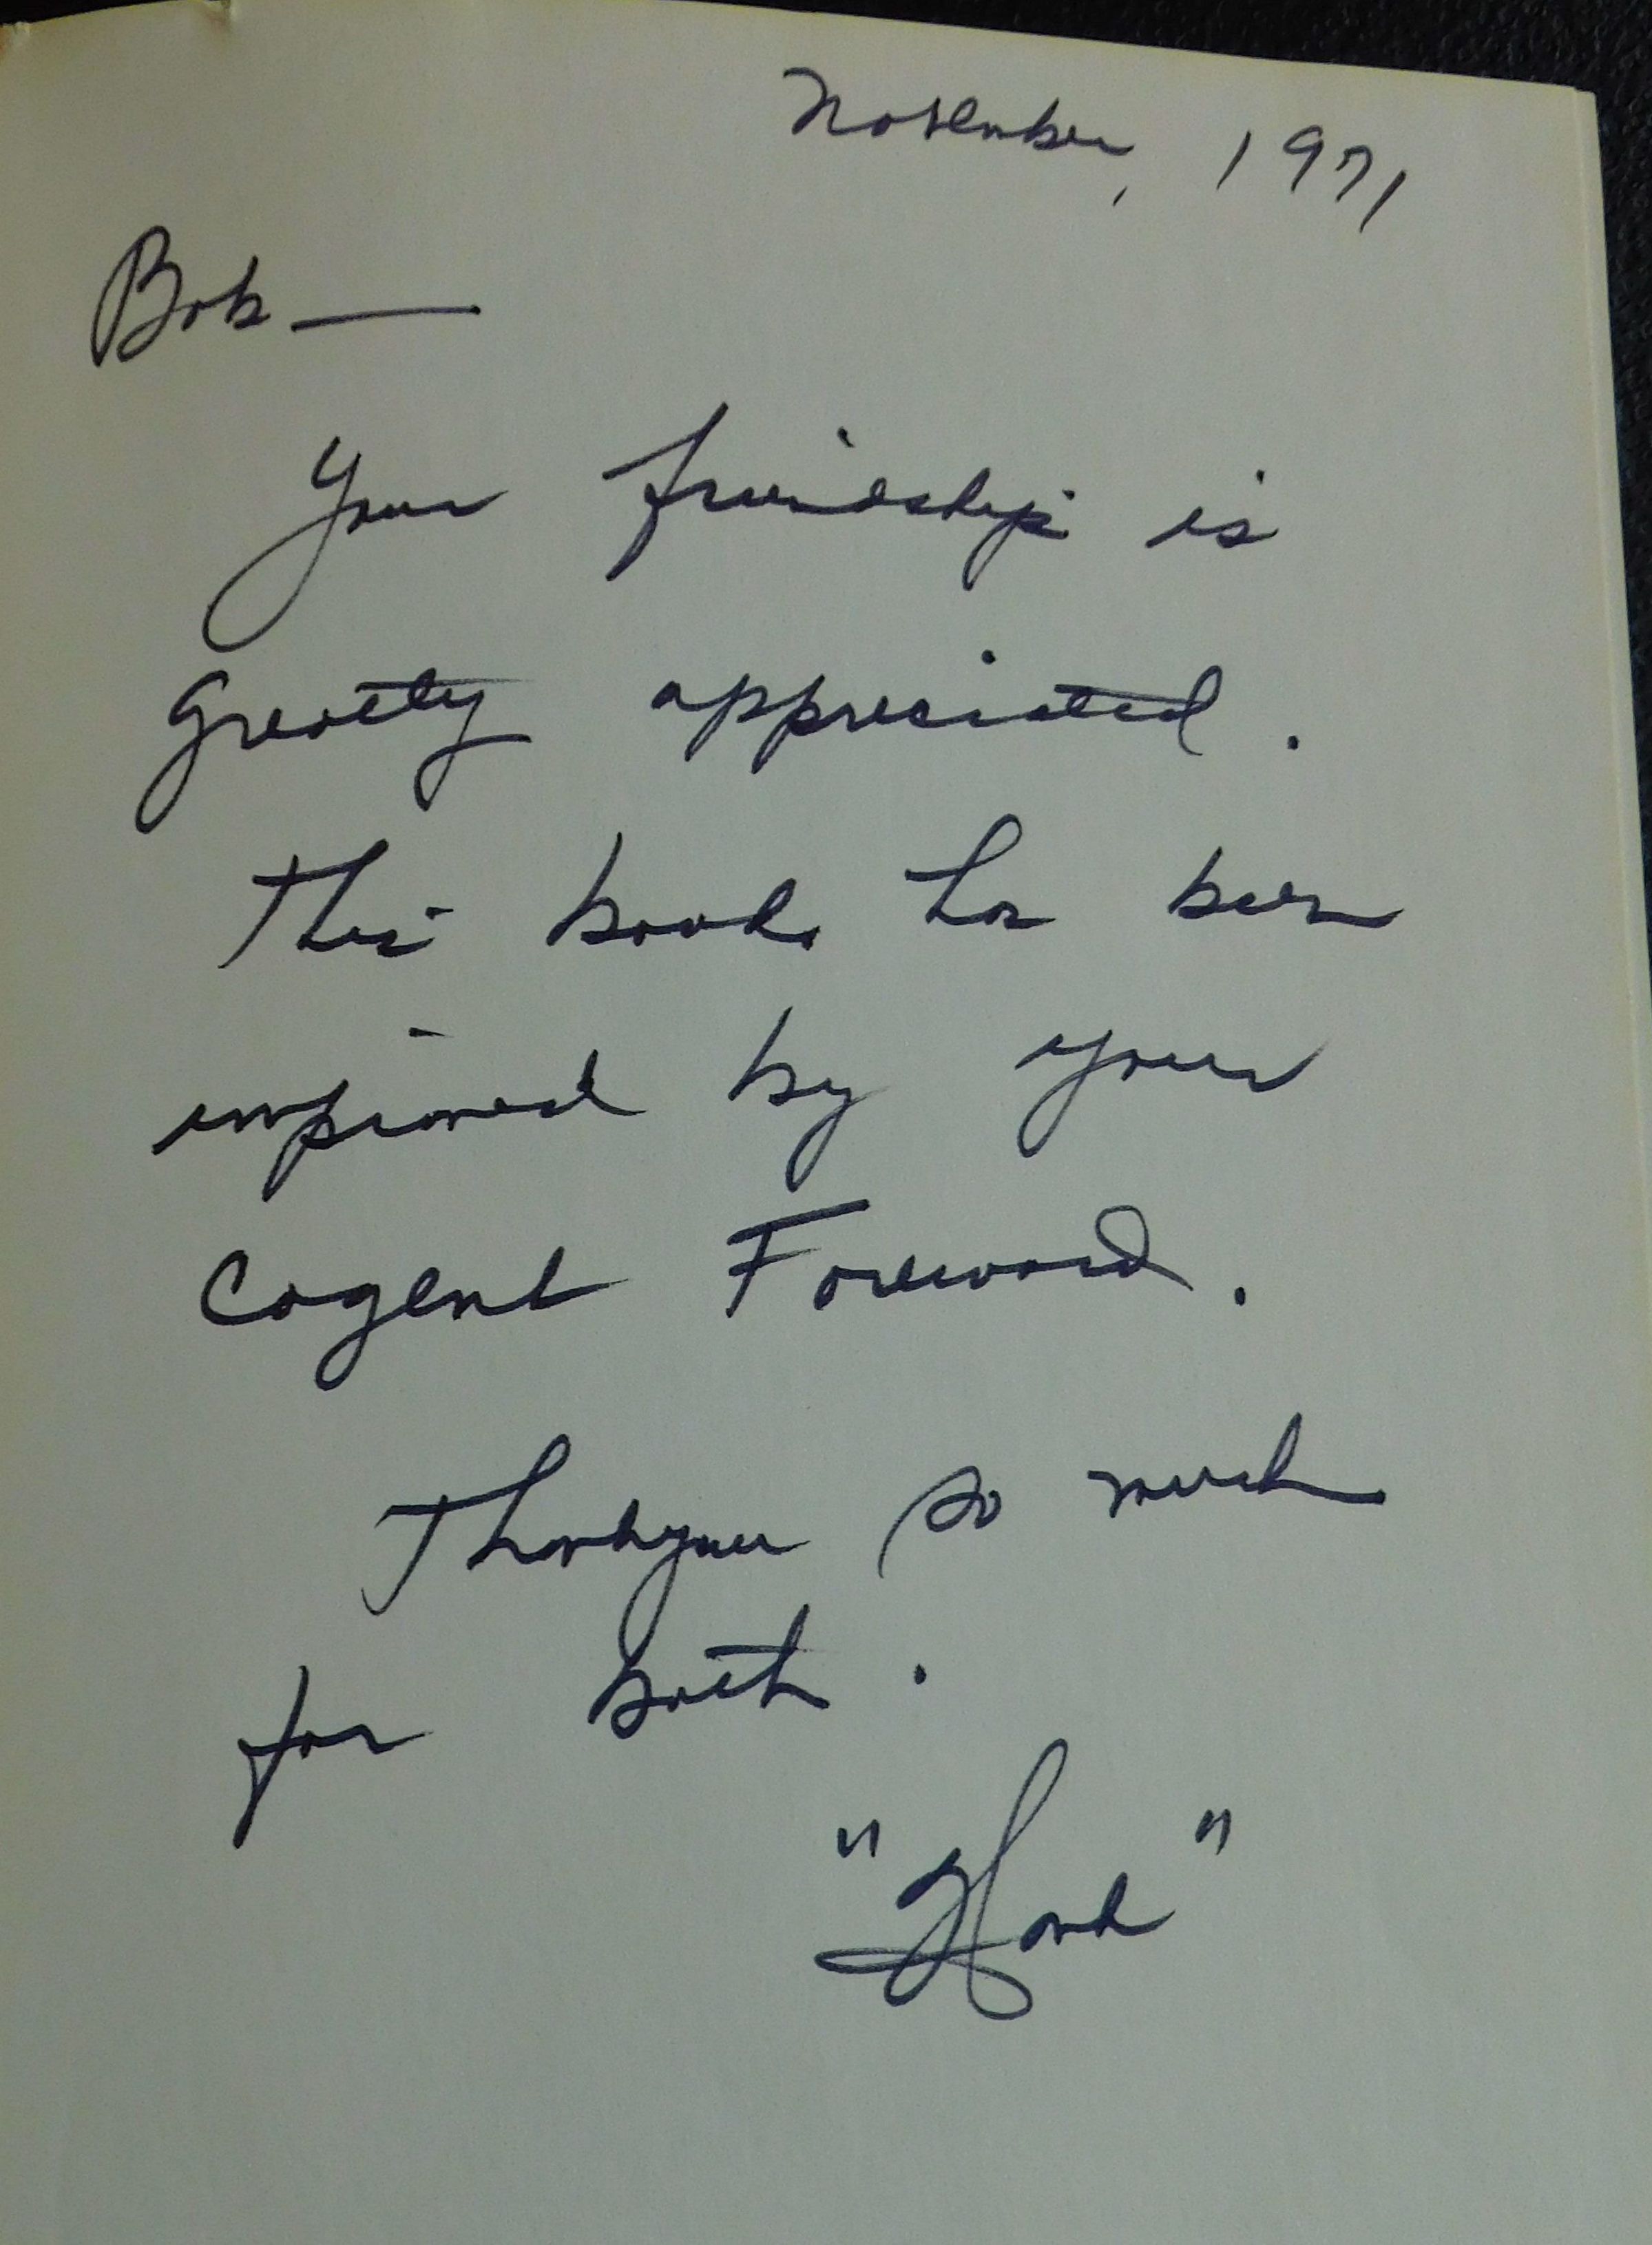 November, 1971
Bob —
Your friendship is
greatly appreciated.
This book has been
improved by your
Cogent Foreword.
Thank you so much
for both.
"Hank"